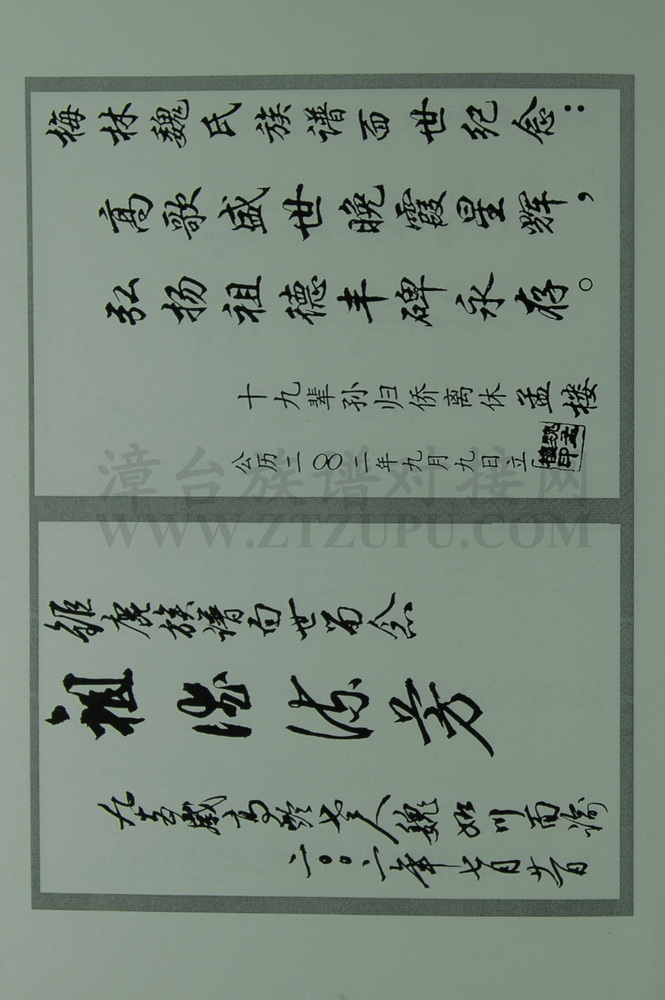 梅林魏氏族谱百世纪念：
高歌盛世晚霞星辉，
弘扬祖德丰碑永存。
十九辈孙归侨离休 孟楼
公历二〇〇二年九月九日立
漳台族谱对接网
WWW.ZTZUPU.COM
钜鹿族谱百世留念
祖德流芳
九五岁高龄老人魏如川
二〇〇二年七月廿日